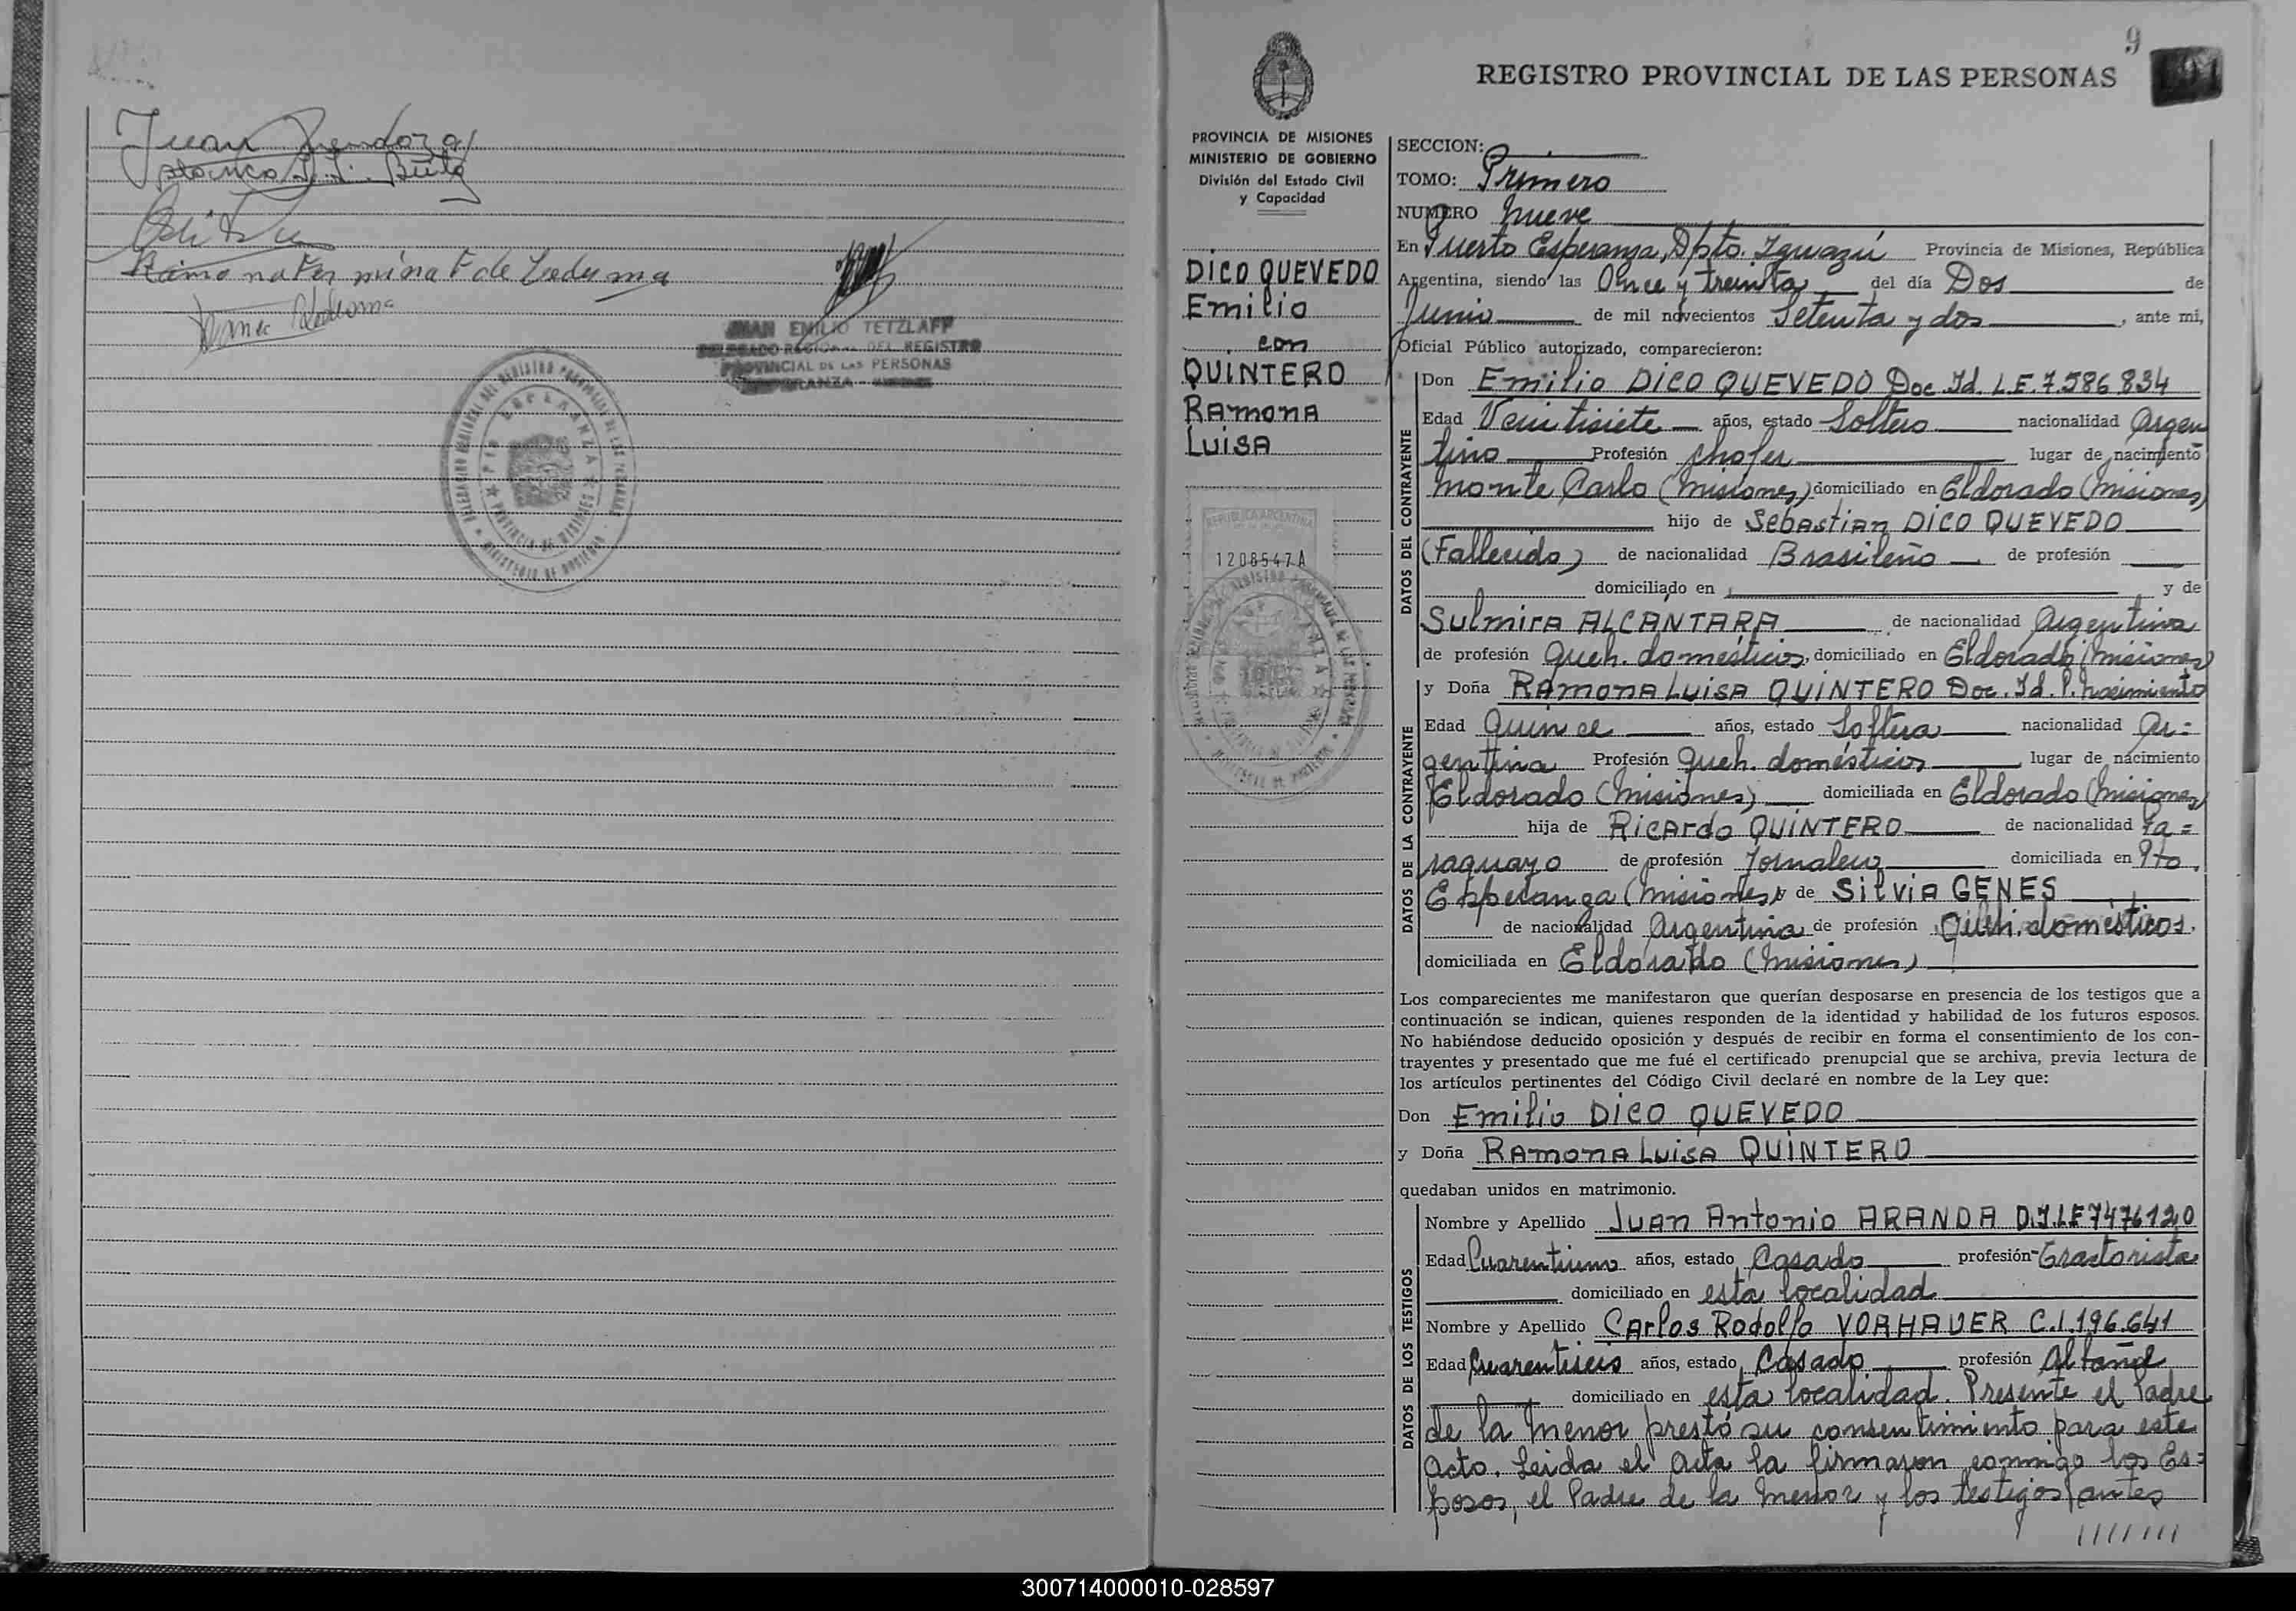 Juan Mendoza
Blanca
Ramona Fermina F de Ledesma
Ledesma
JUAN EMILIO TETZLAFF
DELEGADO REGIONAL DEL REGISTRO
PROVINCIAL DE LAS PERSONAS
ESPERANZA - MISIONES
9
REGISTRO PROVINCIAL DE LAS PERSONAS
PROVINCIA DE MISIONES
MINISTERIO DE GOBIERNO
División del Estado Civil
y Capacidad
DICO QUEVEDO
Emilio
con
QUINTERO
RAmona
LUISA
REPUBLICA ARGENTINA
1208547A
SECCION:
TOMO: Primero
NUMERO Nueve
En Puerto Esperanza, Dpto. Iguazú Provincia de Misiones, República
Argentina, siendo las Once y treinta del día Dos de
Junio de mil novecientos Setenta y dos, ante mi,
Oficial Público autorizado, comparecieron:
DATOS DEL CONTRAYENTE
Don Emilio DICO QUEVEDO Doc. Id. L.E. 7.586.834
Edad Veintisiete años, estado Soltero nacionalidad Argen
tino Profesión chofer lugar de nacimiento
Monte Carlo (Misiones) domiciliado en Eldorado (Misiones)
hijo de SebAstiAn DICO QUEVEDO
(Fallecido) de nacionalidad Brasileño de profesión
domiciliado en y de
SulmirA ALCANTARA de nacionalidad Argentina
de profesión Queh. domésticos, domiciliado en Eldorado (Misiones)
DATOS DE LA CONTRAYENTE
y Doña RAmonA LuisA QUINTERO Doc. Id. P. Nacimiento
Edad Quince años, estado Soltera nacionalidad Ar=
gentina Profesión Queh. domésticos lugar de nacimiento
Eldorado (Misiones) domiciliada en Eldorado (Misiones)
hija de RicArdo QUINTERO de nacionalidad Pa=
raguayo de profesión Jornalero domiciliada en Pto.
Esperanza (Misiones) y de SilviA GENES
de nacionalidad Argentina de profesión Queh. domésticos.
domiciliada en Eldorado (Misiones)
Los comparecientes me manifestaron que querían desposarse en presencia de los testigos que a
continuación se indican, quienes responden de la identidad y habilidad de los futuros esposos.
No habiéndose deducido oposición y después de recibir en forma el consentimiento de los con-
trayentes y presentado que me fué el certificado prenupcial que se archiva, previa lectura de
los artículos pertinentes del Código Civil declaré en nombre de la Ley que:
Don Emilio DICO QUEVEDO
y Doña RAmonA LuisA QUINTERO
quedaban unidos en matrimonio.
DATOS DE LOS TESTIGOS
Nombre y Apellido JuAn Antonio ARANDA D.I.LE 7476120
Edad Cuarentiuno años, estado Casado profesión Tractorista
domiciliado en esta localidad
Nombre y Apellido CArlos Rodolfo VORHAUER C.I. 196.641
Edad Cuarentiseis años, estado Casado profesión Albañil
domiciliado en esta localidad. Presente el Padre
de la Menor prestó su consentimiento para este
Acto. Leida el Acta la firmaron conmigo los Es=
posos, el Padre de la Menor y los testigos antes
///////
300714000010-028597